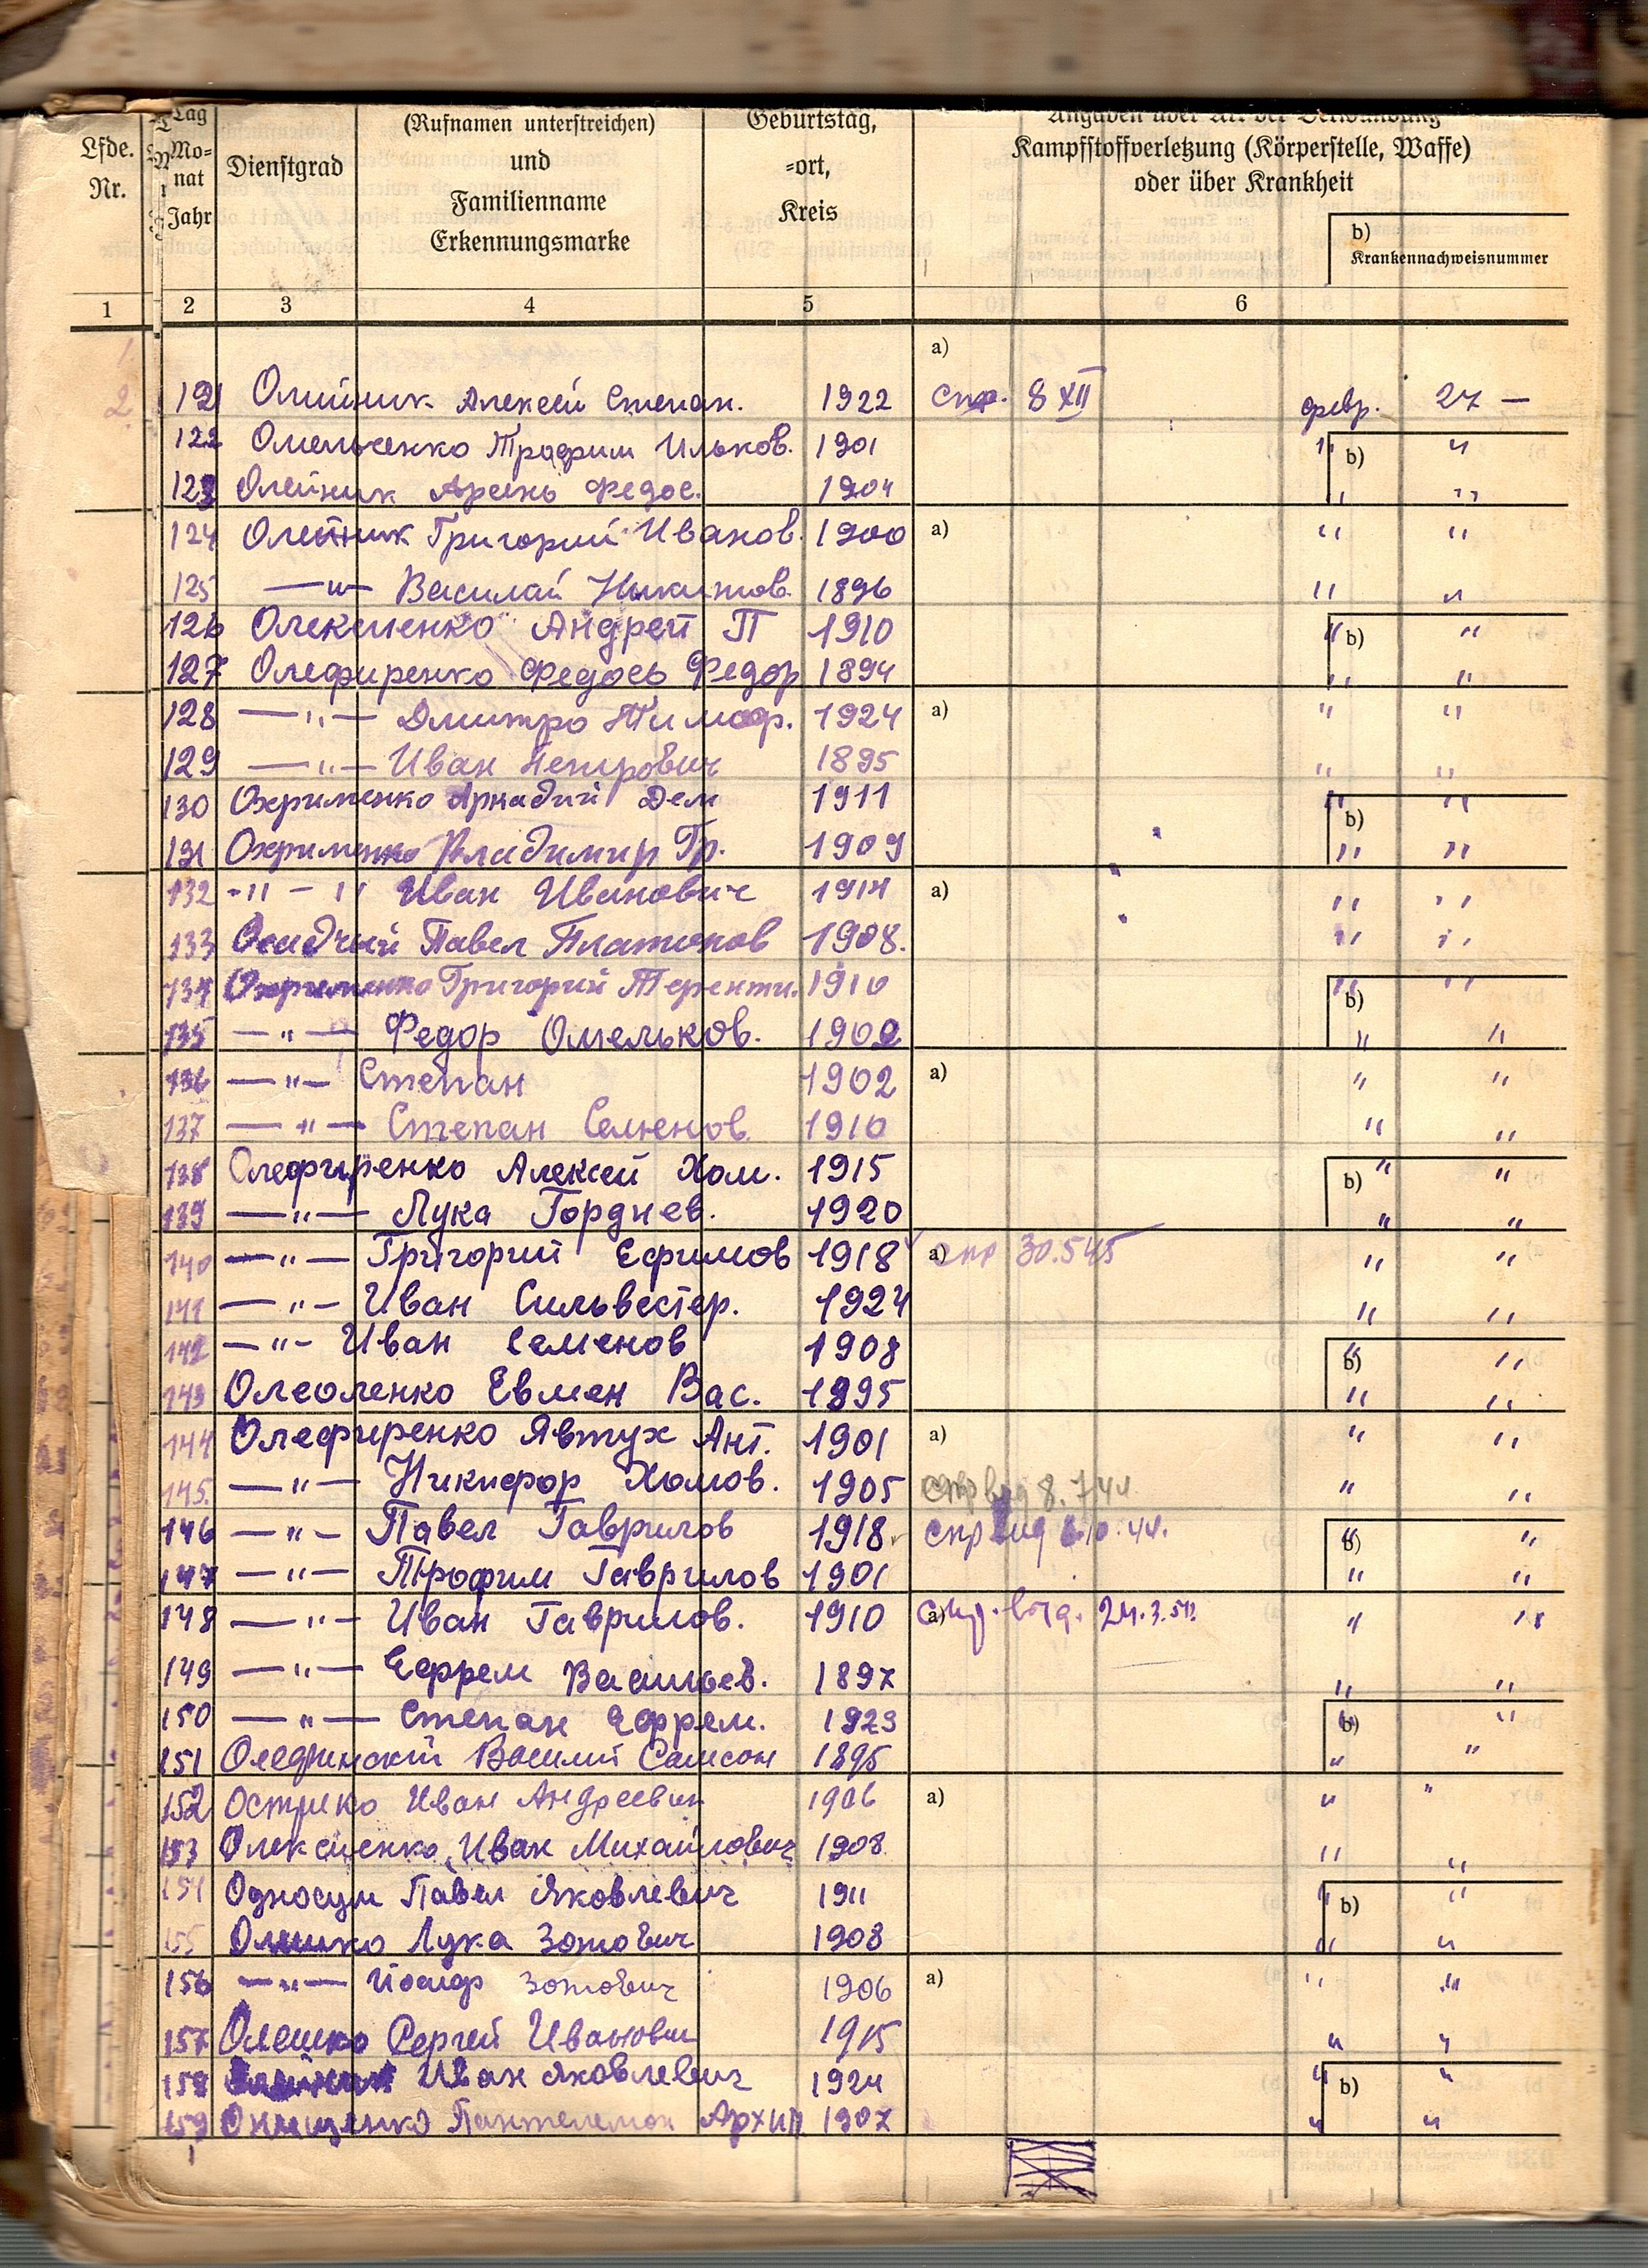 Lfde.
Nr.
Tag
Mo=
nat
Jahr
Dienstgrad
(Rufnamen unterstreichen)
und
Familienname
Erkennungsmarke
Geburtstag,
=ort,
Kreis
Angaben über Art der Verwundung
Kampfstoffverletzung (Körperstelle, Waffe)
oder über Krankheit
b)
Krankennachweisnummer
1 2 3 4 5 6
1. a)
2. 121 Олийник Алексей Степан. 1922 спр. 8 XII февр. 27 —
122 Омельченко Трофим Ильков. 1901 " b) "
123 Олейник Арсень Федос. 1904 " "
124 Олейник Григорий Иванов. 1900 a) " "
125 —"— Василий Никитов. 1896 " "
126 Олексиенко Андрей П 1910 " b) "
127 Олефиренко Федось Федор 1894 " "
128 —"— Дмитро Тимоф. 1924 a) " "
129 —"— Иван Петрович 1895 " "
130 Охрименко Аркадий Дем 1911 " b) "
131 Охрименко Владимир Гр. 1909 " "
132 -"- " Иван Иванович 1914 a) " "
133 Осадчий Павел Платонов 1908. " "
134 Охрименко Григорий Теренти. 1910 " b) "
135 —"— Федор Омельков. 1902 " "
136 —"— Степан 1902 a) " "
137 —"— Степан Семенов. 1910 " "
138 Олефиренко Алексей Хом. 1915 b) " "
139 —"— Лука Горднев. 1920 " "
140 —"— Григорий Ефимов 1918 a) спр 30.545 " "
141 —"— Иван Сильвестер. 1924 " "
142 —"— Иван Семенов 1908 b) " "
143 Олеоленко Евмен Вас. 1895 " "
144 Олефиренко Явтух Ант. 1901 a) " "
145. —"— Никифор Хомов. 1905 спр від 8.744 " "
146 —"— Павел Гаврилов 1918 спр від 10.44. b) " "
147 —"— Трофим Гаврилов 1901 " "
148 —"— Иван Гаврилов. 1910 a) 24.3.51 " "
149 —"— Ефрем Васильев. 1897 " "
150 —"— Степан Ефрем. 1923 b) " "
151 Василий Самсон 1895 " "
152 Острико Иван Андреевич 1906 a) " "
153 Олексиенко Иван Михайлович 1908 " "
154 Односум Павел Яковлевич 1911 " b) "
155 Олешко Лука Зотович 1908 " "
156 —"— Йосиф Зотович 1906 a) " "
157 Олешко Сергей Иванович 1915 " "
158 Иван Яковлевич 1924 " b) "
159 Онищенко Пантелемон Архип 1907 " "